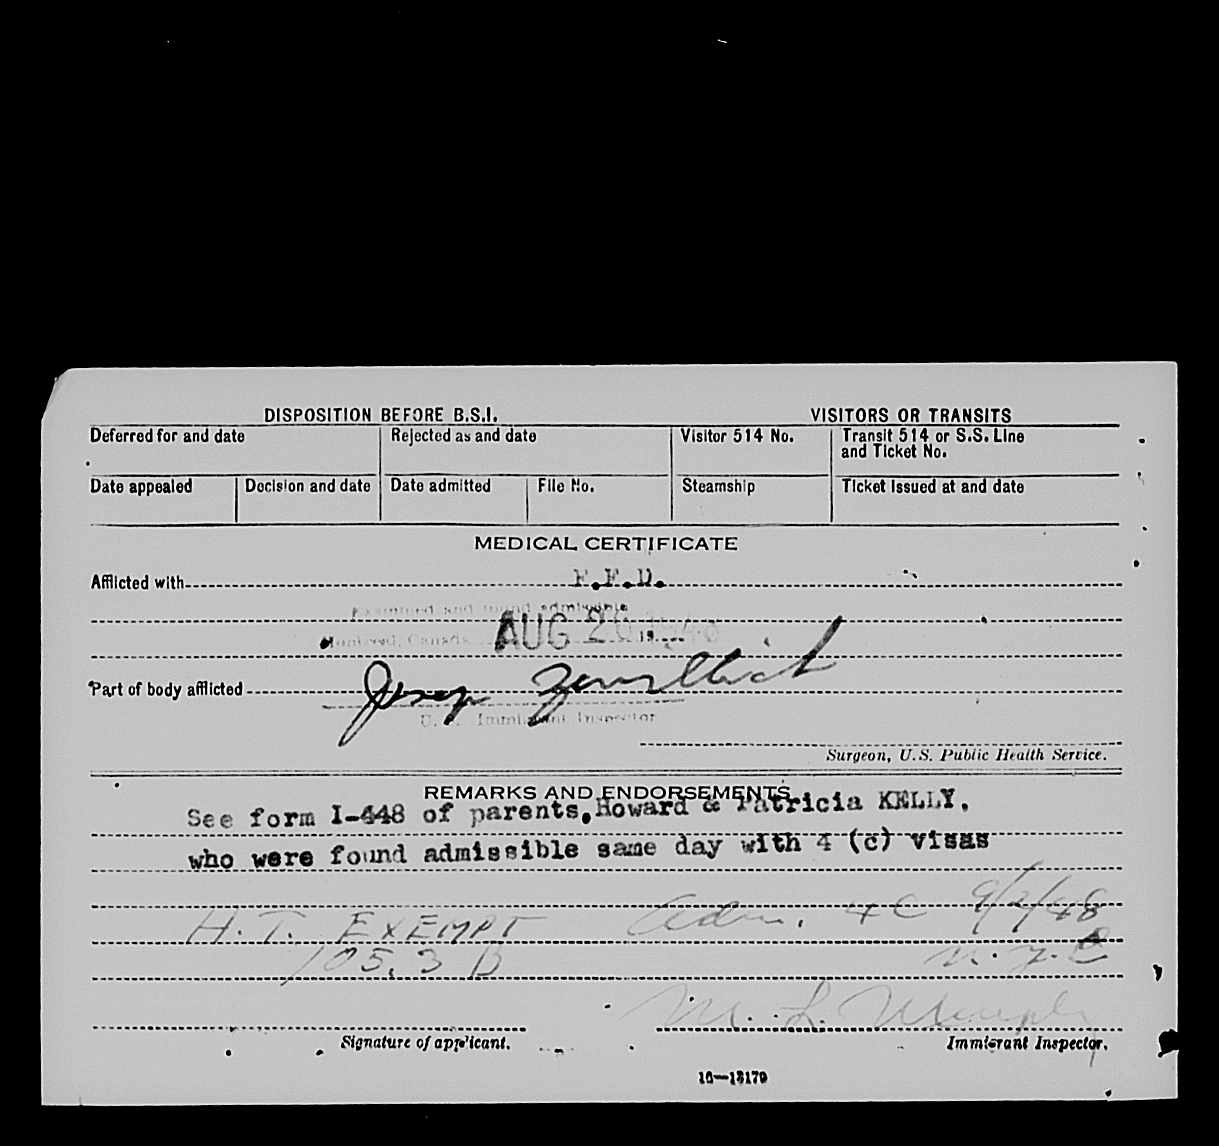 DISPOSITION BEFORE B.S.I. VISITORS OR TRANSITS
Deferred for and date Rejected as and date Visitor 514 No. Transit 514 or S.S. Line
and Ticket No.
Date appealed Decision and date Date admitted File No. Steamship Ticket issued at and date
MEDICAL CERTIFICATE
Afflicted with F.F.D.
Examined and found admissible
Montreal, Canada AUG 20 1948 19
Part of body afflicted
U. S. Immigrant Inspector
Surgeon, U.S. Public Health Service.
REMARKS AND ENDORSEMENTS
See form I-448 of parents, Howard & Patricia KELLY,
who were found admissible same day with 4 (c) visas
H.T. EXEMPT Adm. 4C 9/2/48
105.3 B N.Y.C
M. L.
Signature of applicant. Immigrant Inspector.
16—13179